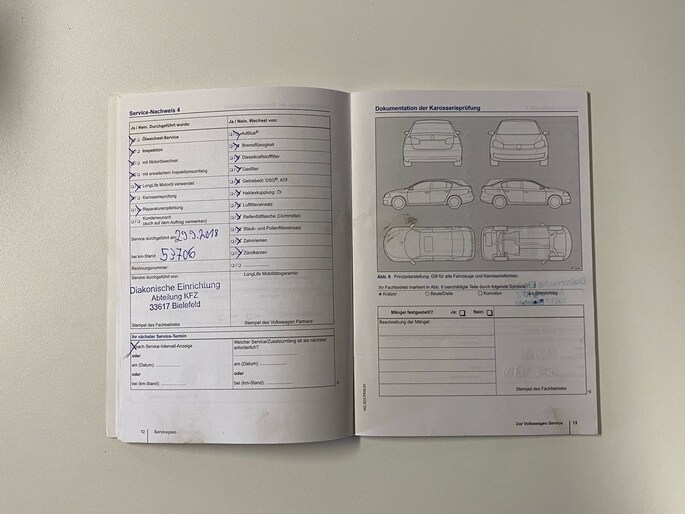 Service-Nachweis 4
Ja / Nein. Durchgeführt wurde:
Ölwechsel-Service
Inspektion
mit Motorölwechsel
mit erweitertem Inspektionsumfang
LongLife Motoröl verwendet
Karosserieprüfung
Reparaturempfehlung
Kundenwunsch
(auch auf dem Auftrag vermerken)
Service durchgeführt am: 29.9.2018
bei km-Stand: 53706
Rechnungsnummer:
Service durchgeführt von:
Diakonische Einrichtung
Abteilung KFZ
33617 Bielefeld
Stempel des Fachbetriebs
Ja / Nein. Wechsel von:
AdBlue®
Bremsflüssigkeit
Dieselkraftstofffilter
Gasfilter
Getriebeöl: DSG®, ATF
Haldexkupplung: Öl
Luftfiltereinsatz
Reifenfüllflasche (Dichtmittel)
Staub- und Pollenfiltereinsatz
Zahnriemen
Zündkerzen
LongLife Mobilitätsgarantie:
Stempel des Volkswagen Partners
Ihr nächster Service-Termin
nach Service-Intervall-Anzeige
oder
am (Datum):
oder
bei (km-Stand):
Welcher Service/Zusatzumfang ist als nächster
erforderlich?
am (Datum):
oder
bei (km-Stand):
12 Serviceplan
Dokumentation der Karosserieprüfung
Abb. 6 Prinzipdarstellung: Gilt für alle Fahrzeuge und Karosserieformen.
Ihr Fachbetrieb markiert in Abb. 6 beschädigte Teile durch folgende Symbole:
Kratzer
Beule/Delle
Korrosion
Steinschlag
Mängel festgestellt? Ja: Nein:
Beschreibung der Mängel:
Stempel des Fachbetriebs
Der Volkswagen Service 13